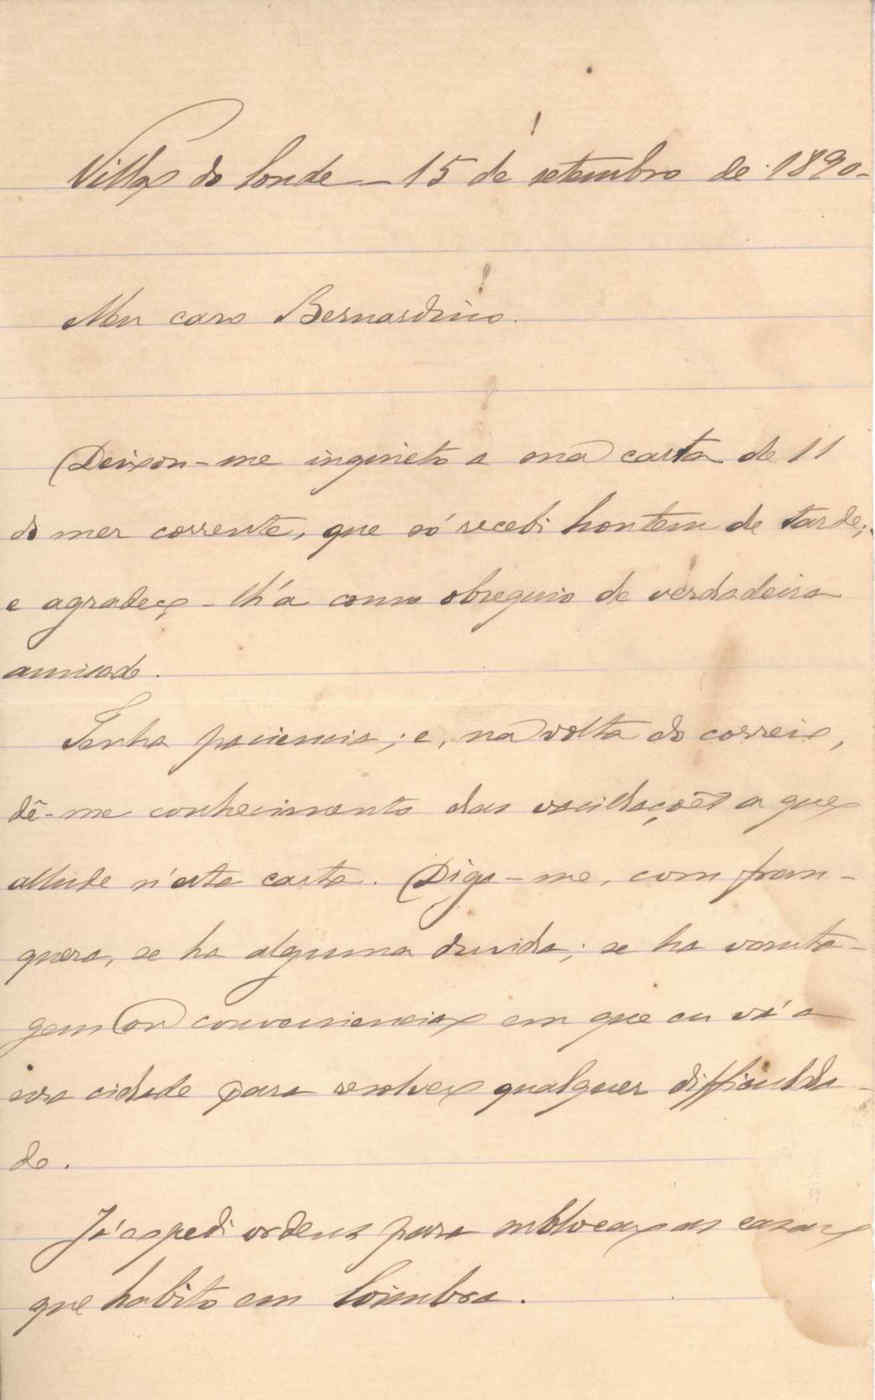 Villa do Conde — 15 de setembro de 1890.
Meu caro Bernardino.
Deixou-me inquieto a sua carta de 11
do mez corrente, que só recebi hontem de tarde;
e agradeço-lh'a como obsequio de verdadeira
amisade.
Tenha paciencia; e, na volta do correio,
dê-me conhecimento das vacillações a que
allude n'esta carta. Diga-me, com fran-
queza, se ha alguma duvida; se ha vanta-
gem ou conveniencia em que eu vá a
essa cidade para resolver qualquer difficulda-
de.
Já espedi ordens para as casas
que habito em Coimbra.